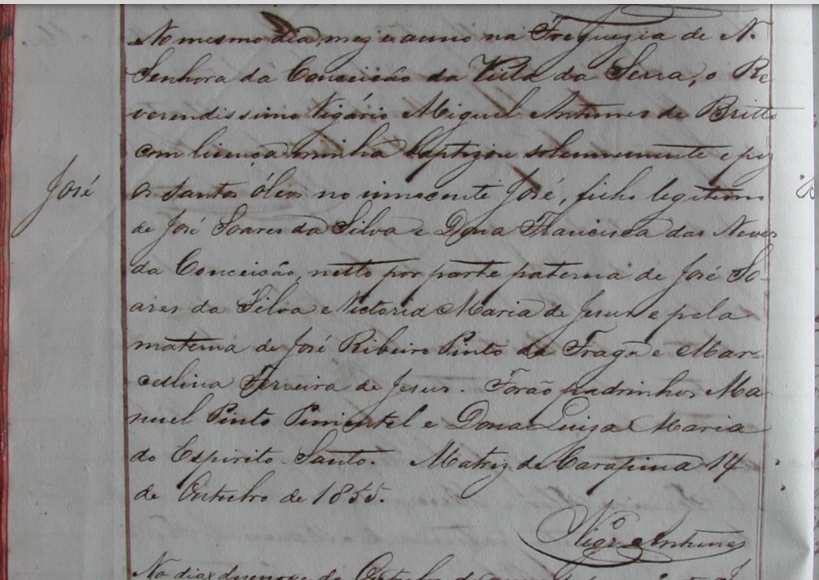 No mesmo dia, mez e anno na Freguezia de N.
Senhora da Conceicão da Villa da Serra, o Re
verendissimo Vigário Miguel Antunes de Britto
com licença minha baptizou solemnemente e poz
José
os santos óleos no innocente José, filho legitimo
de José Soares da Silva e Dona Francisca das Neves
da Conceicão, netto por parte paterna de José So-
ares da Silva e Victoria Maria de Jesus e pela
materna de José Ribeiro Pinto da Fraga e Mar-
cellina Ferreira de Jesus. Forão padrinhos Ma
nuel Pinto Pimentel e Dona Luiza Maria
do Espirito Santo. Matriz de Carapina 14
de Outubro de 1855.
Vigr.o Antunes
No dia de Outubro de